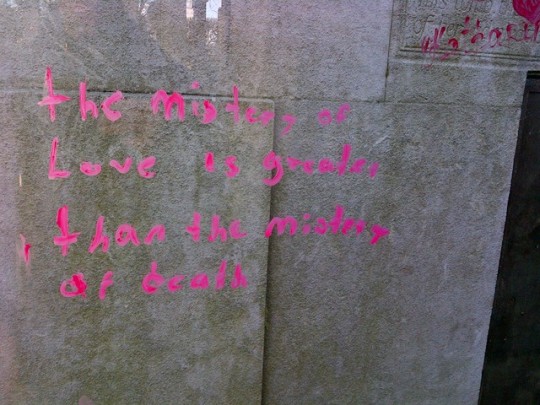 the mistery of
Love is greater
than the mistery
of death